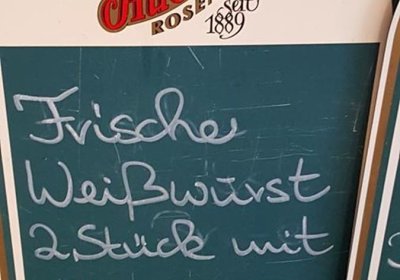 seit
1889
Frische
Weißwürst
2 Stück mit